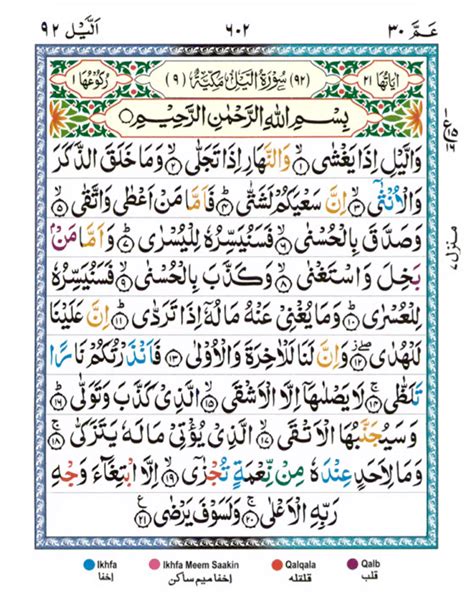 عـم ٣٠ ٦٠٢ الّيل ٩٢
اٰيَاتُهَا ٢١ (٩٢) سُوْرَةُ الَّيْلِ مَكِّيَّةٌ (٩) رُكُوْعُهَا ١
بِسْمِ اللّٰهِ الرَّحْمٰنِ الرَّحِيْمِ ○
وَالَّيْلِ اِذَا يَغْشٰى ۙ﴿۱﴾ وَالنَّهَارِ اِذَا تَجَلّٰى ۙ﴿۲﴾ وَمَا خَلَقَ الذَّكَرَ
وَالْاُنْثٰٓى ۙ﴿۳﴾ اِنَّ سَعْيَكُمْ لَشَتّٰى ؕ﴿۴﴾ فَاَمَّا مَنْ اَعْطٰى وَاتَّقٰى ۙ﴿۵﴾
وَصَدَّقَ بِالْحُسْنٰى ۙ﴿۶﴾ فَسَنُيَسِّرُهٗ لِلْيُسْرٰى ؕ﴿۷﴾ وَاَمَّا مَنْۢ
بَخِلَ وَاسْتَغْنٰى ۙ﴿۸﴾ وَكَذَّبَ بِالْحُسْنٰى ۙ﴿۹﴾ فَسَنُيَسِّرُهٗ
لِلْعُسْرٰى ؕ﴿۱۰﴾ وَمَا يُغْنِىْ عَنْهُ مَالُهٗٓ اِذَا تَرَدّٰى ؕ﴿۱۱﴾ اِنَّ عَلَيْنَا
لَلْهُدٰى ۖ﴿۱۲﴾ وَاِنَّ لَنَا لَلْاٰخِرَةَ وَالْاُوْلٰى ﴿۱۳﴾ فَاَنْذَرْتُكُمْ نَارًا
تَلَظّٰى ۚ﴿۱۴﴾ لَا يَصْلٰىهَآ اِلَّا الْاَشْقَى ۙ﴿۱۵﴾ الَّذِىْ كَذَّبَ وَتَوَلّٰى ؕ﴿۱۶﴾
وَسَيُجَنَّبُهَا الْاَتْقَى ۙ﴿۱۷﴾ الَّذِىْ يُؤْتِىْ مَالَهٗ يَتَزَكّٰى ۚ﴿۱۸﴾
وَمَا لِاَحَدٍ عِنْدَهٗ مِنْ نِّعْمَةٍ تُجْزٰٓى ۙ﴿۱۹﴾ اِلَّا ابْتِغَآءَ وَجْهِ
رَبِّهِ الْاَعْلٰى ۚ﴿۲۰﴾ وَلَسَوْفَ يَرْضٰى ﴿۲۱﴾ ع
منزل ٧
Ikhfa Ikhfa Meem Saakin Qalqala Qalb
إخفا إخفا ميم ساكن قلقله قلب